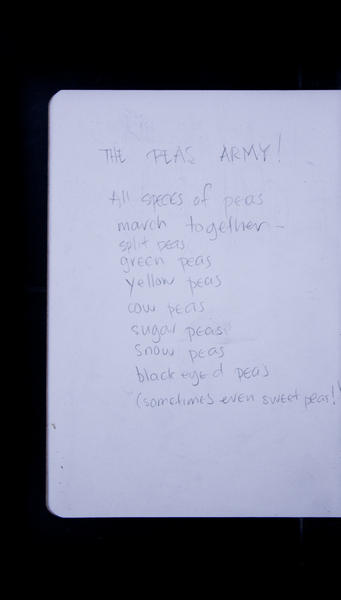 THE PEAS ARMY!
All species of peas
march together -
split peas
green peas
yellow peas
cow peas
sugar peas
snow peas
black eyed peas
(sometimes even sweet peas!)